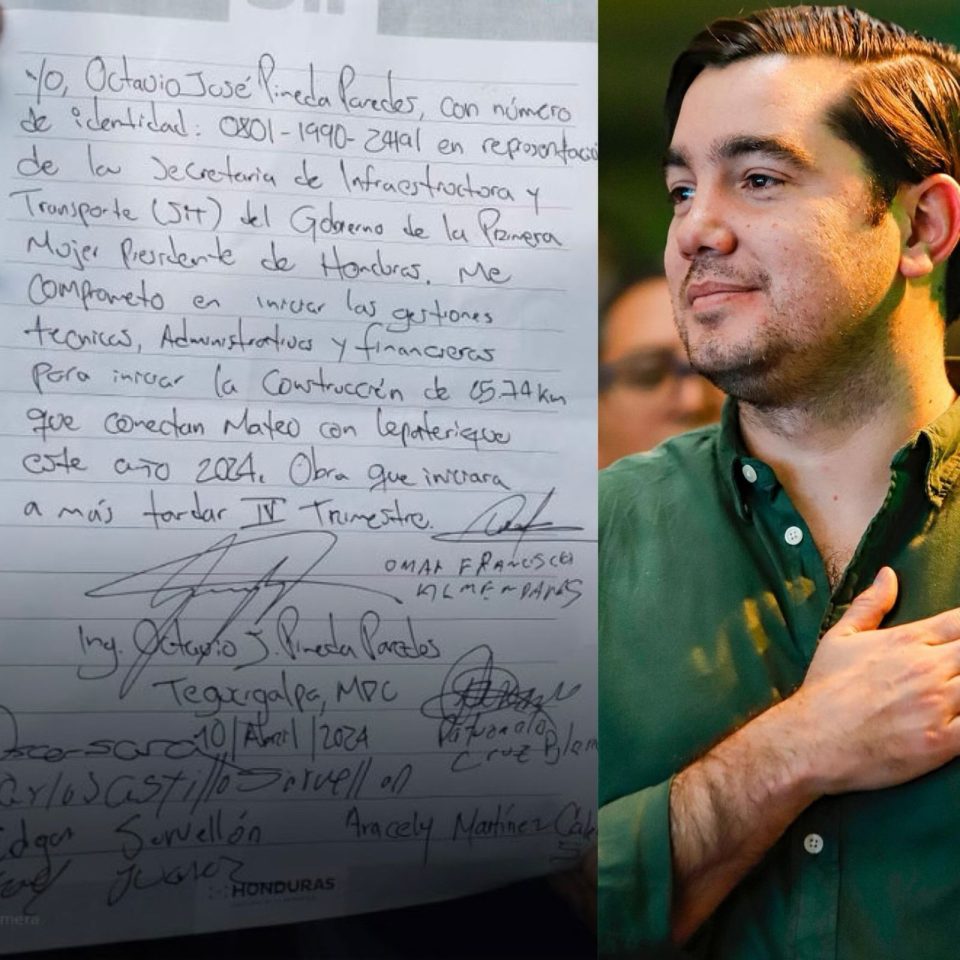 Yo, Octavio José Pineda Paredes, con número
de identidad: 0801-1990-24191 en representació
de la Secretaria de Infraestructora y
Transporte (SIT) del Gobierno de la Primera
Mujer Presidente de Honduras. Me
Comprometo en iniciar las gestiones
tecnicas, Administrativas y financieras
para iniciar la Construcción de 15.74 km
que conectan Mateo con Lepaterique
este año 2024. Obra que iniciara
a más tardar IV Trimestre.
OMAR FRANCISCO
Ing. Octavio J. Pineda Paredes
Tegucigalpa, MDC
10/Abril/2024
Cruz
Carlos Castillo Servellon
Edgar Servellón Aracely Martínez
Juarez
HONDURAS